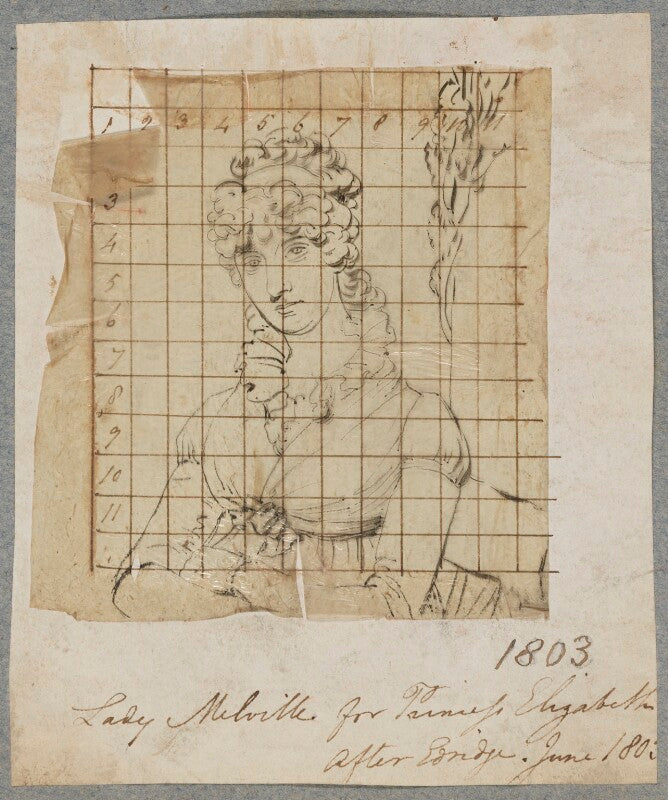 1 2 3 4 5 6 7 8 9 10 11
3
4
5
6
7
8
9
10
11
1803
Lady Melville. for Princess Elizabeth
After Edridge. June 1803